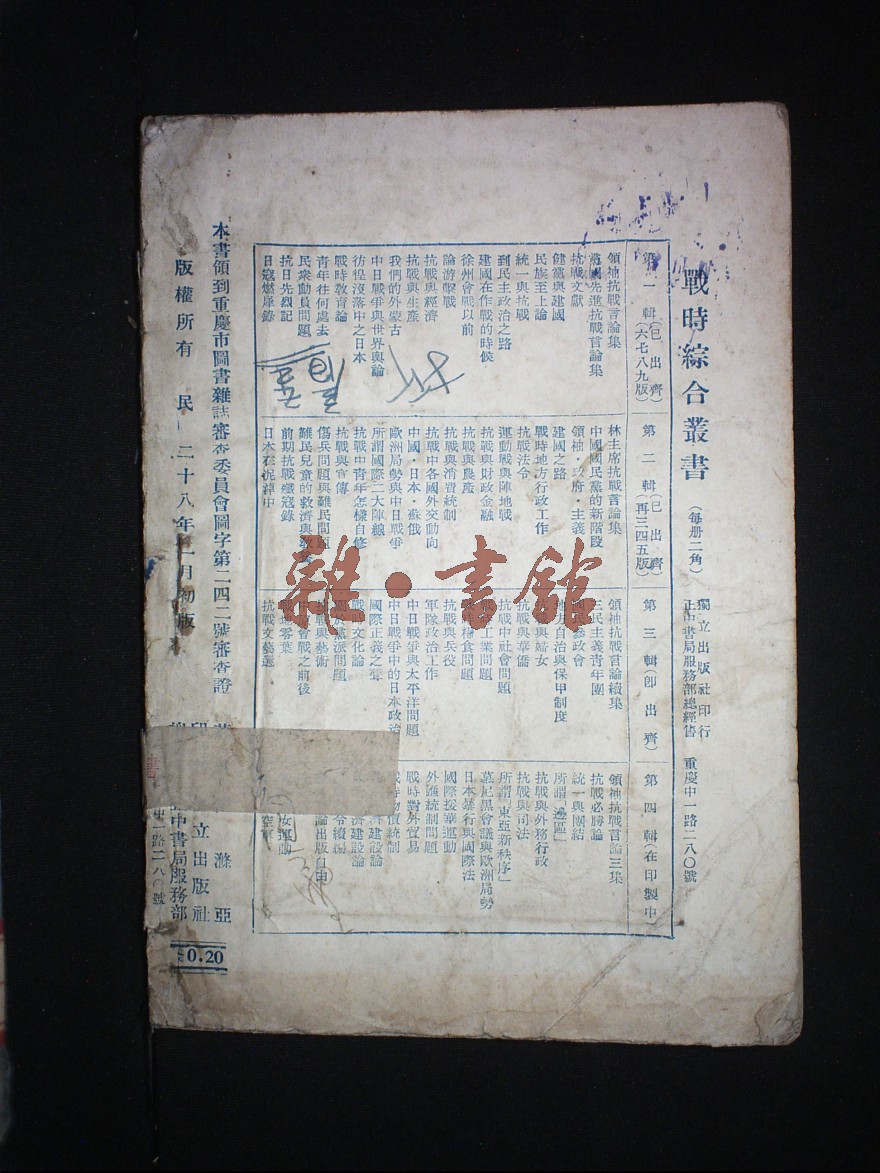 戰時綜合叢書（每册二角）
獨立出版社印行
正中書局服務部總經售　重慶中一路二八〇號
第一輯（已出齊）（六七八九版）
領袖抗戰言論集
黨國先進抗戰言論集
抗戰文獻
健黨與建國
民族至上論
統一與抗戰
到民主政治之路
建國在作戰的時候
徐州會戰以前
論游擊戰
抗戰與經濟
抗戰與生產
我們的外蒙古
中日戰爭與世界輿論
彷徨沒落中之日本
戰時教育論
青年往何處去
民衆動員問題
抗日先烈記
日寇燃犀錄
第二輯（已出齊）（再三四五版）
林主席抗戰言論集
中國國民黨的新階段
領袖・政府・主義
建國之路
戰時地方行政工作
抗戰法令
運動戰與陣地戰
抗戰與財政金融
抗戰與農產
抗戰與消費統制
抗戰中各國外交動向
中國・日本・蘇俄
歐洲局勢與中日戰爭
所謂國際二大陣線
抗戰中青年怎樣自修
抗戰與宣傳
傷兵問題與難民問題
難民兒童的救濟與教
前期抗戰殲寇錄
日本在泥淖中
第三輯（即出齊）
領袖抗戰言論續集
三民主義青年團
國民參政會
地方自治與保甲制度
抗戰與婦女
抗戰與華僑
抗戰中社會問題
工業問題
糧食問題
抗戰與兵役
軍隊政治工作
中日戰爭與太平洋問題
中日戰爭中的日本政治
國際正義之聲
戰時文化論
關於黨派問題
抗戰與藝術
會戰之前後
戰地零葉
抗戰文藝選
第四輯（在印製中）
領袖抗戰言論三集
抗戰必勝論
統一與團結
所謂「邊區」
抗戰與外務行政
抗戰與司法
所謂「東亞新秩序」
慕尼黑會議與歐洲局勢
日本暴行與國際法
國際援華運動
外匯統制問題
戰時對外貿易
戰時物價統制
濟建設論
濟建設論
令續編
論出版自由
女運動
空軍
本書領到重慶市圖書雜誌審查委員會圖字第二四二號審查證
版權所有　民　二十八年　一月初版
滌亞
立出版社
中書局服務部
一路二八〇號
0.20
雜・書館